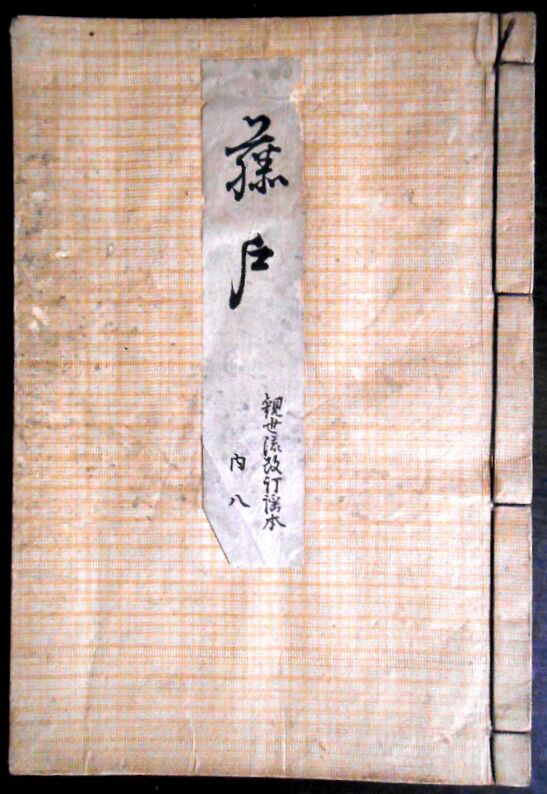 藤戸
観世流改訂謡本
内八